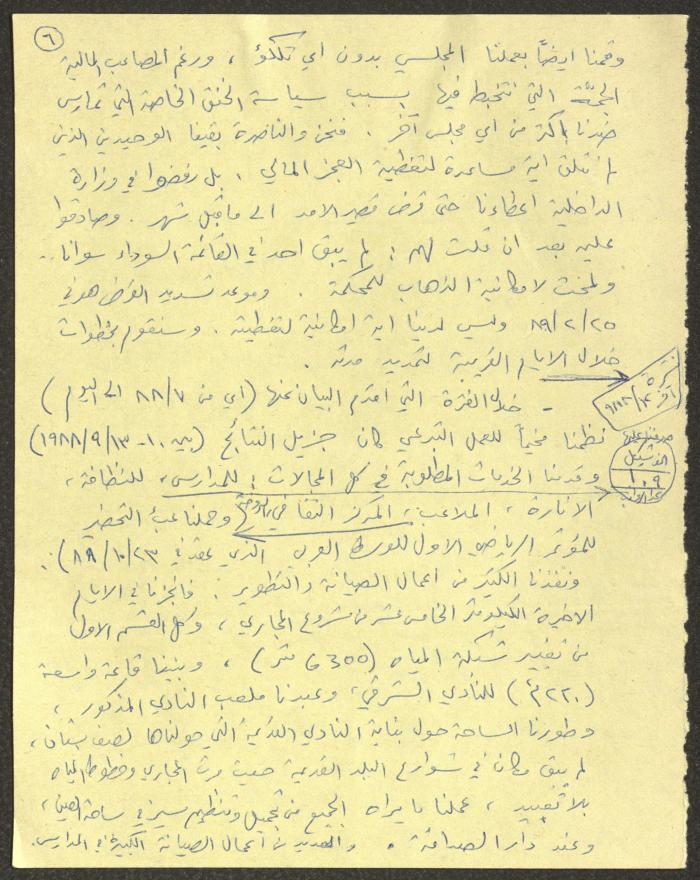 ٦
وقمنا ايضاً بعملنا المجلسي بدون اي تلكؤ ، ورغم المصاعب المالية
الجمّة التي نتخبط فيها بسبب سياسة الخنق الخاصة التي تمارس
ضدنا اكثر من اي مجلس آخر . فنحن والناصرة بقينا الوحيدين الذين
لم نتلق اية مساعدة لتغطية العجز المالي ، بل رفضوا في وزارة
الداخلية اعطاءنا حتى قرض قصير الامد الى ما قبل شهر . وصادقوا
عليه بعد ان قلت لهم : لم يبق احد في القائمة السوداء سوانا ..
ولمحت لامكانية الذهاب للمحكمة . وموعد تسديد القرض هو في
٨٩/٢/٢٥ وليس لدينا اية امكانية لتغطيته . وسنقوم بخطوات
خلال الايام القريبة لتمديد مدته .
- خلال الفترة التي اقدم البيان عنها (اي من ٨٨/٧ الى اليوم)
نظمنا مخيماً للعمل التبرعي كان جزيل النتائج (بين ١٠-١٩٨٨/٩/١٣)
وقدمنا الخدمات المطلوبة في كل المجالات : للمدارس ، للنظافة ،
صرفنا عليها
١٠٩
الانارة ، الملاعب ، المركز الثقافي وحملنا عبء التحضير
للمؤتمر الرياضي الاول للوسط العربي الذي عقد في ٨٩/١٠/٢٣) .
ونفذنا الكثير من اعمال الصيانة والتطوير : فانجزنا في الايام
الاخيرة الكيلومتر الخامس عشر من مشروع المجاري ، وكل القسم الاول
من تغيير شبكة المياه (6300 متر) ، وبنينا قاعة واسعة
(٢٢٠م²) للنادي الشرقي ، وعبدنا ملعب النادي المذكور ،
وطورنا الساحة حول بناية النادي القديمة التي حولناها لصف بستان ،
لم يبق مكان في شوارع البلد القديمة حيث مرت المجاري وخطوط المياه
بلا تعبيد ، عملنا ما يراه الجميع من تجميل وتنظيم سير في ساحة العين ،
وعند دار الصداقة . والعديد من اعمال الصيانة الكبيرة في المدارس .